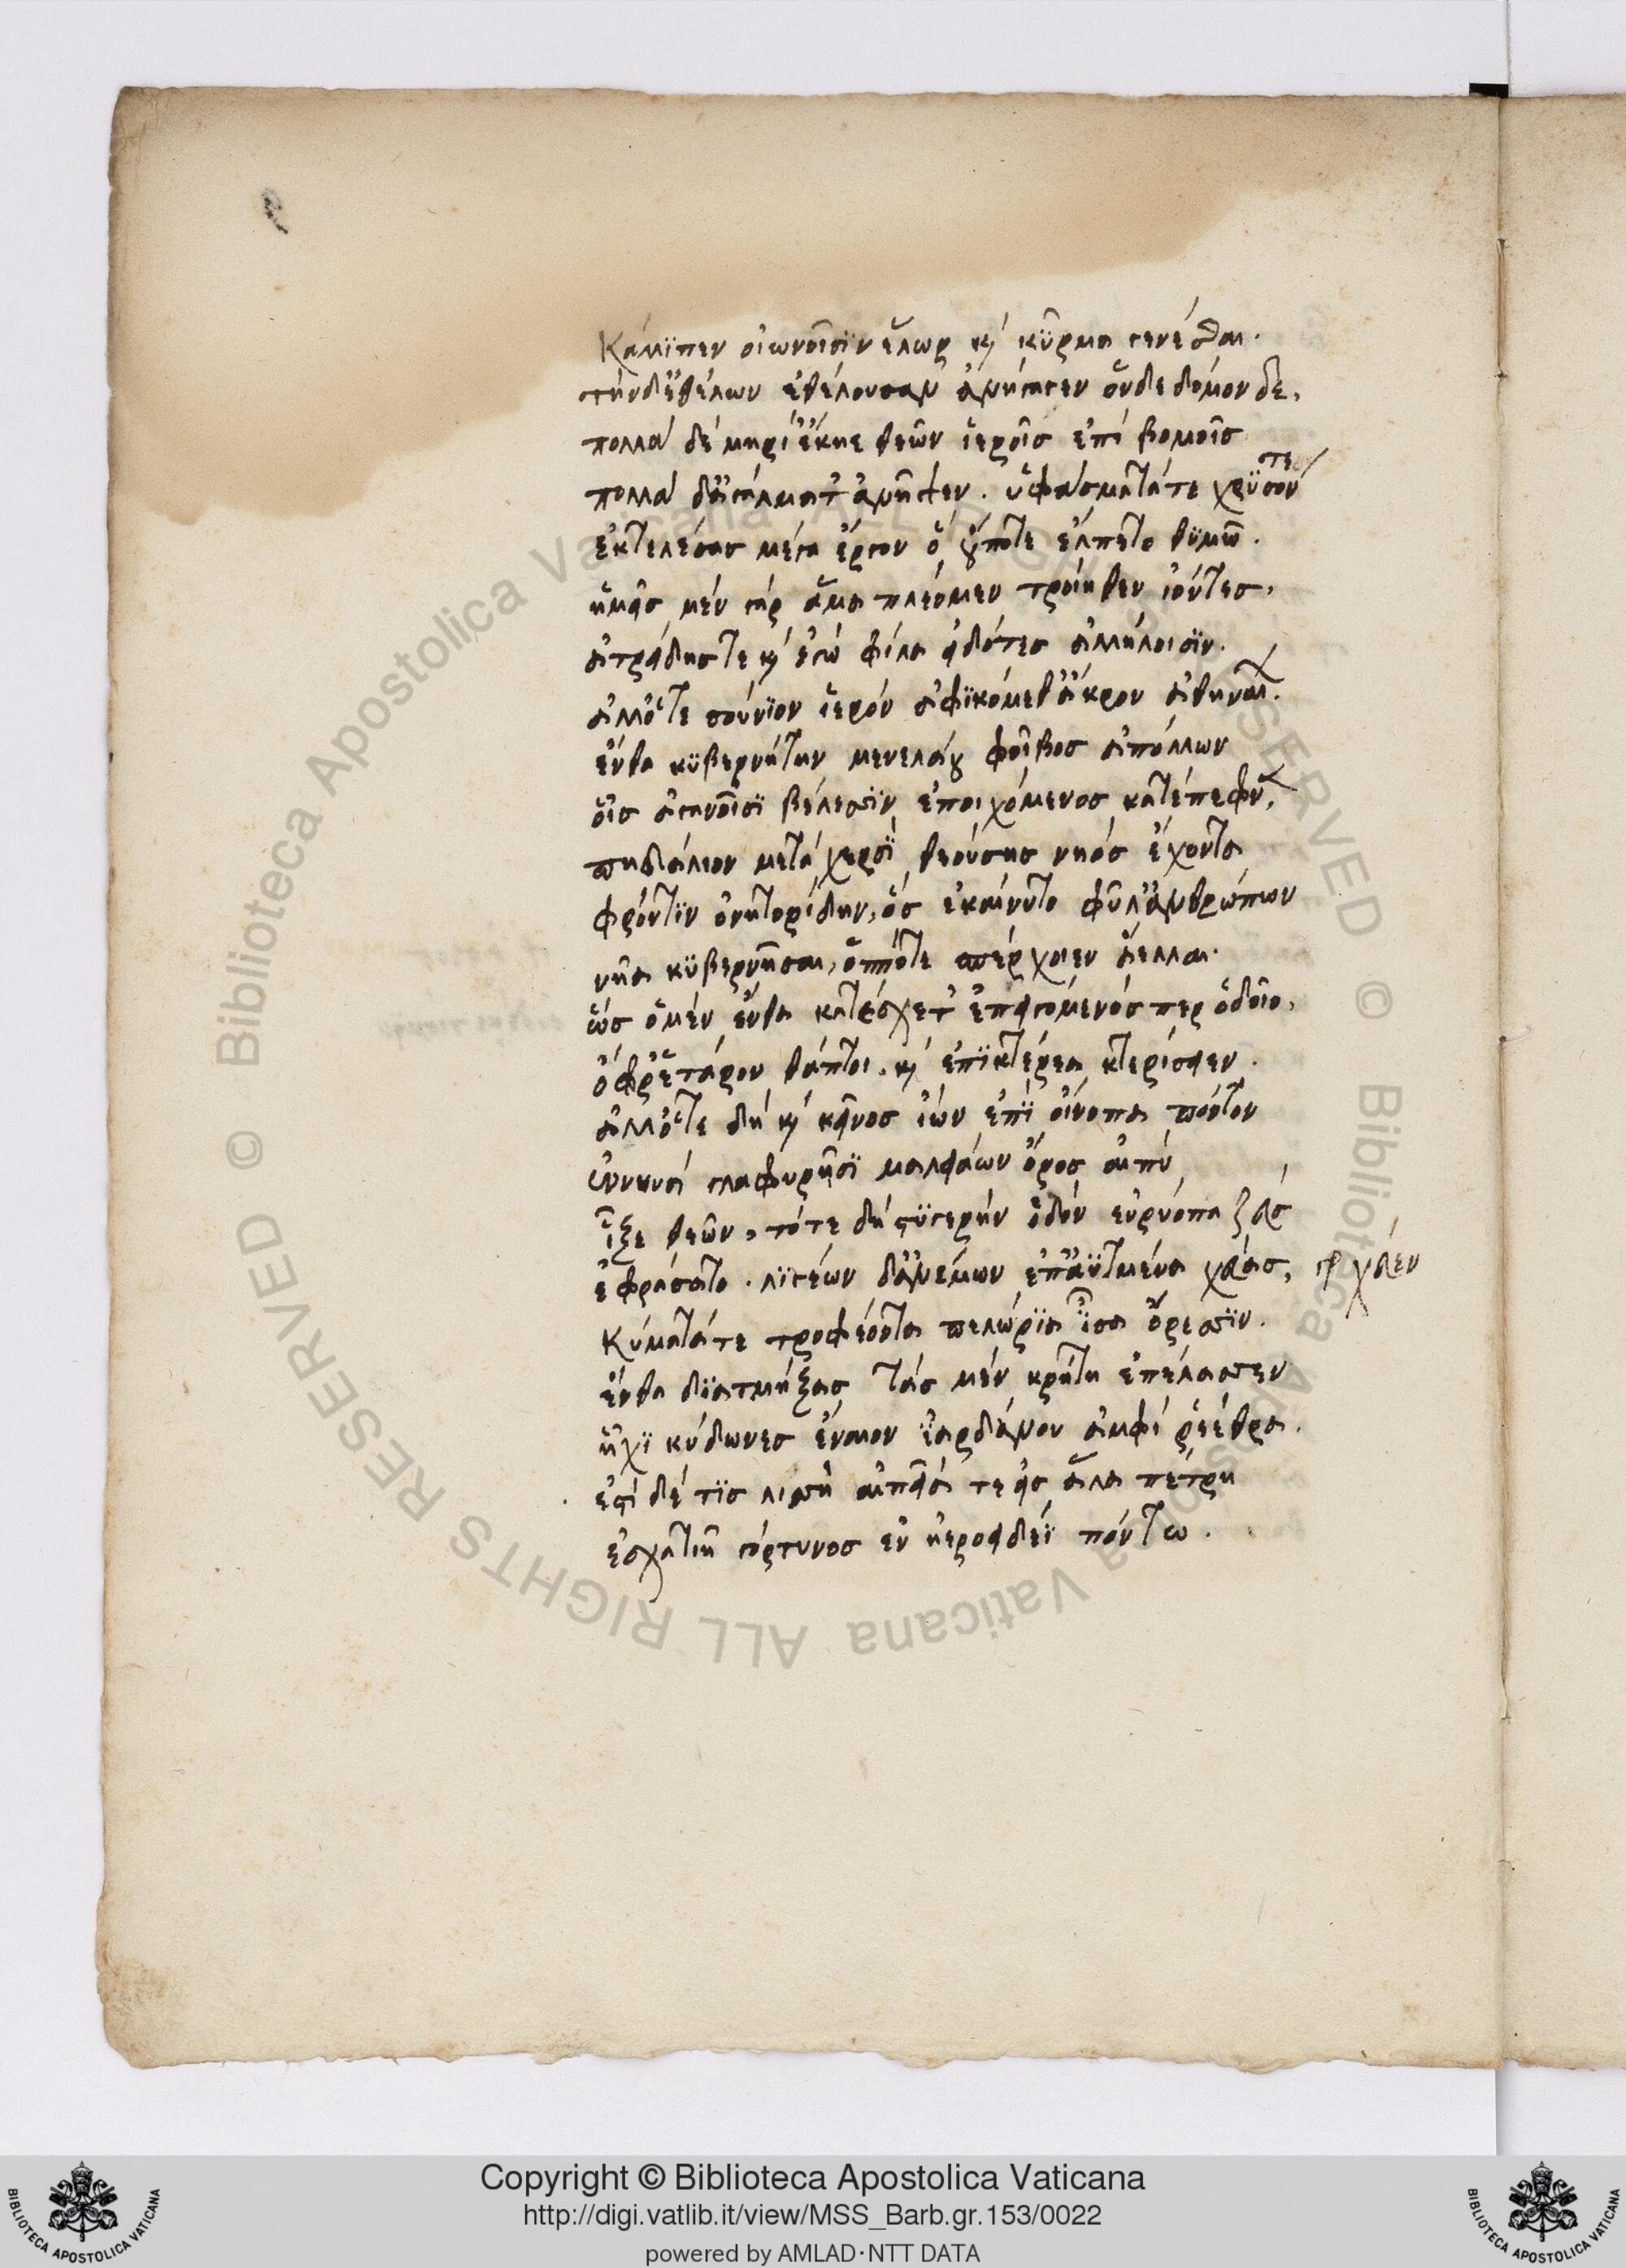 Κάλλϊπεν οἰωνοῖσϊν ἕλωρ καὶ κῦρμα γενέσθαι.
τὴν δ' ἐθέλων ἐθέλουσαν ἀνήγαγεν ὅνδε δόμον δε,
πολλὰ δὲ μηρί' ἔκηε θεῶν ἱεροῖς ἐπὶ βομοῖς
πολλὰ δ' ἀγάλματ' ἀνῆψεν. ὑφάσματά τε χρϋσόν τε
ἐκτελέσας μέγα ἔργον ὃ οὔποτε ἔλπετο θϋμῶ.
ἡμεῖς μὲν γὰρ ἅμα πλέομεν τροίηθεν ἰόντες,
ἀτρείδης τε καὶ ἐγὼ φίλα εἰδότες ἀλλήλοισϊν.
ἀλλ' ὅτε σούνϊον ἱερὸν ἀφϊκόμεθ' ἄκρον ἀθηναίων.
ἔνθα κϋβερνήτην μενελάου φοῖβος ἀπόλλων
οἷς ἀγανοῖσϊ βέλεσσϊν ἐποιχόμενος κατέπεφνεν,
πηδάλιον μετὰ χερσϊ θεούσης νηὸς ἔχοντα
φρόντϊν ὀνητορίδην, ὃς ἐκαίνυτο φῦλ' ἀνθρώπων
νῆα κϋβερνῆσαι, ὁππότε σπέρχοιεν ἄελλαι.
ὣς ὁ μὲν ἔνθα κατέσχετ' ἐπειγόμενός περ ὁδοῖο,
ὄφρ' ἕταρον θάπτοι. καὶ ἐπϊ κτέρεα κτερίσειεν.
ἀλλ' ὅτε δὴ καὶ κεῖνος ἰὼν ἐπϊ οἴνοπα πόντον
ἐν νηυσὶ γλαφυρῆσϊ μαλειάων ὄρος αἰπὺ
ἷξε θεῶν, τότε δὴ στϋγερὴν ὁδὸν εὐρύοπα ζεὺς
ἐφράσατο. λϊγέων δ' ἀνέμων ἐπ' ἀϋτμένα χεύας, γρ χεῦεν
Κύματά τε τροφέοντα πελώρϊα ἶσα ὄρεσσϊν.
ἔνθα δϊατμήξας τὰς μὲν κρήτη ἐπέλασσεν
ἧχϊ κύδωνες ἔναιον ἰαρδάνου ἀμφὶ ῥέεθρα.
ἐστὶ δέ τϊς λισσὴ αἰπεῖά τε εἰς ἅλα πέτρη
ἐσχατιῆ γόρτυνος ἐν ἠεροειδέϊ πόντω.
Copyright © Biblioteca Apostolica Vaticana
http://digi.vatlib.it/view/MSS_Barb.gr.153/0022
powered by AMLAD·NTT DATA